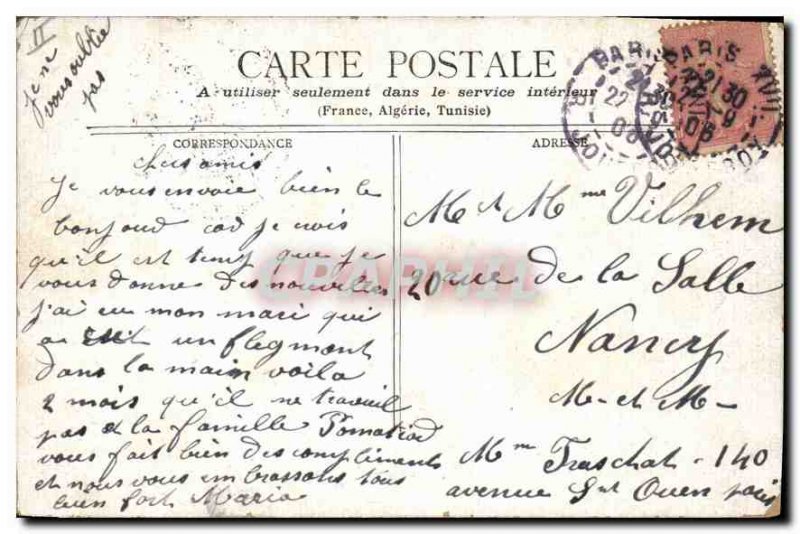 II
je ne
vous oublie
pas
CARTE POSTALE
A utiliser seulement dans le service intérieur
(France, Algérie, Tunisie)
CORRESPONDANCE
ADRESSE
chers amis
Je vous envoie bien le
bonjoud car je crois
qu'il est temp que je
vous donne des nouvelles
j'ai eu mon mari qui
a eut un flegmont
dans la main voila
2 mois qu'il ne travail
pas et la famille
vous fait bien des compliments
et nous vous embrassons tous
bien fort Maria
M et Mme Vilhem
20 rue de la Salle
Nancy
M- et M-
Mme Fraschat - 140
avenue St Ouen paris
PARIS
PARIS XVII
22
21 30
22 - 9
08
CPAPHIL